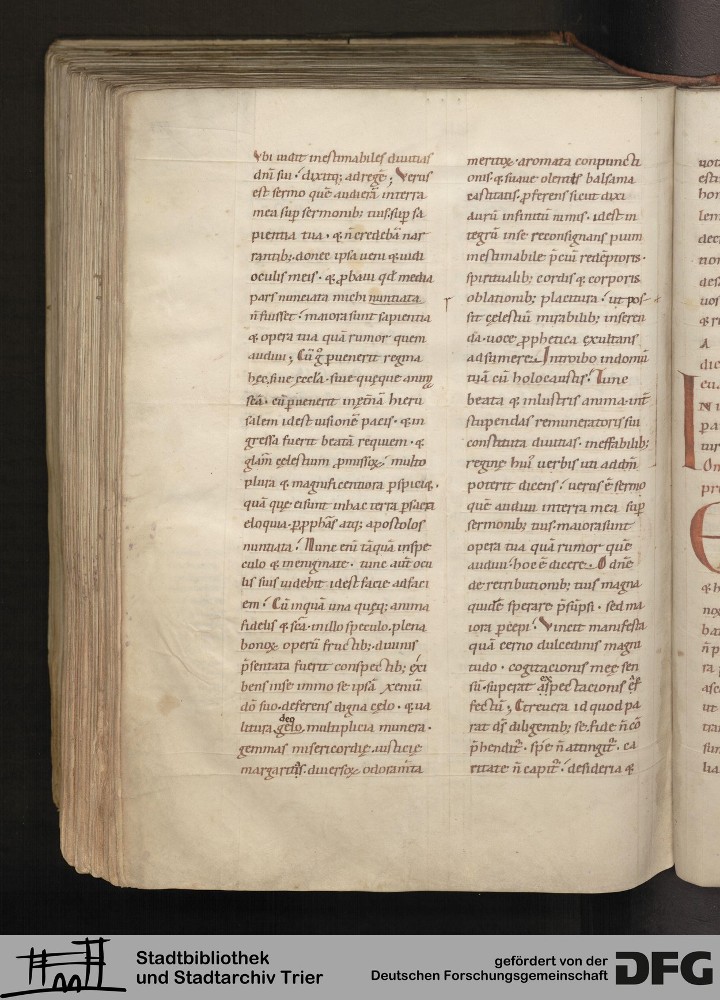 Vbi uidit inestimabiles diuitias
dnī sui · dixitq; ad regē ; Verus
est sermo quē audierā in terra
mea sup sermonib; tuis. sup sa
pientia tua · & ñ credebā nar
rantib; · donec ipsa ueni & uidi
oculis meis · & ꝓbaui qđ media
pars nunciata michi nuntiata
ñ fuisset · maiora sunt sapientia
& opera tua quā rumor quem
audiui ; Cū g̊ puenerit regina
hęc siue ęccła · siue quęque anima
scā · cū puenerit in ęt̄nā hieru
salem id est uisionē pacis · & in
gressa fuerit beatā requiem · &
glam̄ cęlestium ꝓmissoꝝ · multo
plura & magnificentiora pspiciet ·
quā quę ei sunt in hac terra p sacra
eloquia · p pphās atq; apostolos
nuntiata · Nunc eni tāquā in spe
culo & in enigmate · tunc aut̄ ocu
lis suis uidebit id est facie ad faci
em · Cū inquā una quęq; anima
fidelis & scā · in illo speculo. plena
bonoꝝ operū fructib; · diuinis
p̄sentata fuerit conspectib; · exi
bens in se immo se ipsā xeniū
dō suo · deferens digna cęlo · qua
litura deo gelo, multiplicia munera ·
gemmas misericordię. iusticię
margaritas. diuersoꝝ odoram̄ta
meritoꝝ · aromata conpuncti
onis. & suaue olentis balsama
castitatis. pferens sicut dixi
aurū infinitū nimis · id est in
tegrū in se reconsignans pium
inestimabile p̄ciū redēptoris ·
spiritualib; cordis & corporis
oblationib; placitura · ut pos-
sit cęlestiū mirabilib; inseren
da · uoce ꝓphetica exultans
adsumere. Introibo in domū
tuā cū holocaustis · Tunc
beata & inlustris anima · int̄
stupendas remuneratoris sui
constituta diuitias · ineffabilib;
regine hui' uerbis uti ad dm̄
poterit dicens · uerus ē sermo
quē audiui in terra mea sup
sermonib; tuis · maiora sunt
opera tua quā rumor quē
audiui · hoc ē dicere. O dn̄e
de retributionib; tuis magna
quidē sperare p̄sūpsi · sed ma
iora pcepi · Vincit manifesta
quā cerno dulcedinis magni
tudo · cogitacionis meę sen
sū · superat exspectacionis
fectū ; Et reuera id quod pa
rat ds̄ diligentib; se. fide ñ cō
p̄henditᵘʳ · spē ñ attingitᵘʳ · ca
ritate ñ capitᵘʳ · desideria &
Stadtbibliothek
und Stadtarchiv Trier
gefördert von der
Deutschen Forschungsgemeinschaft
DFG